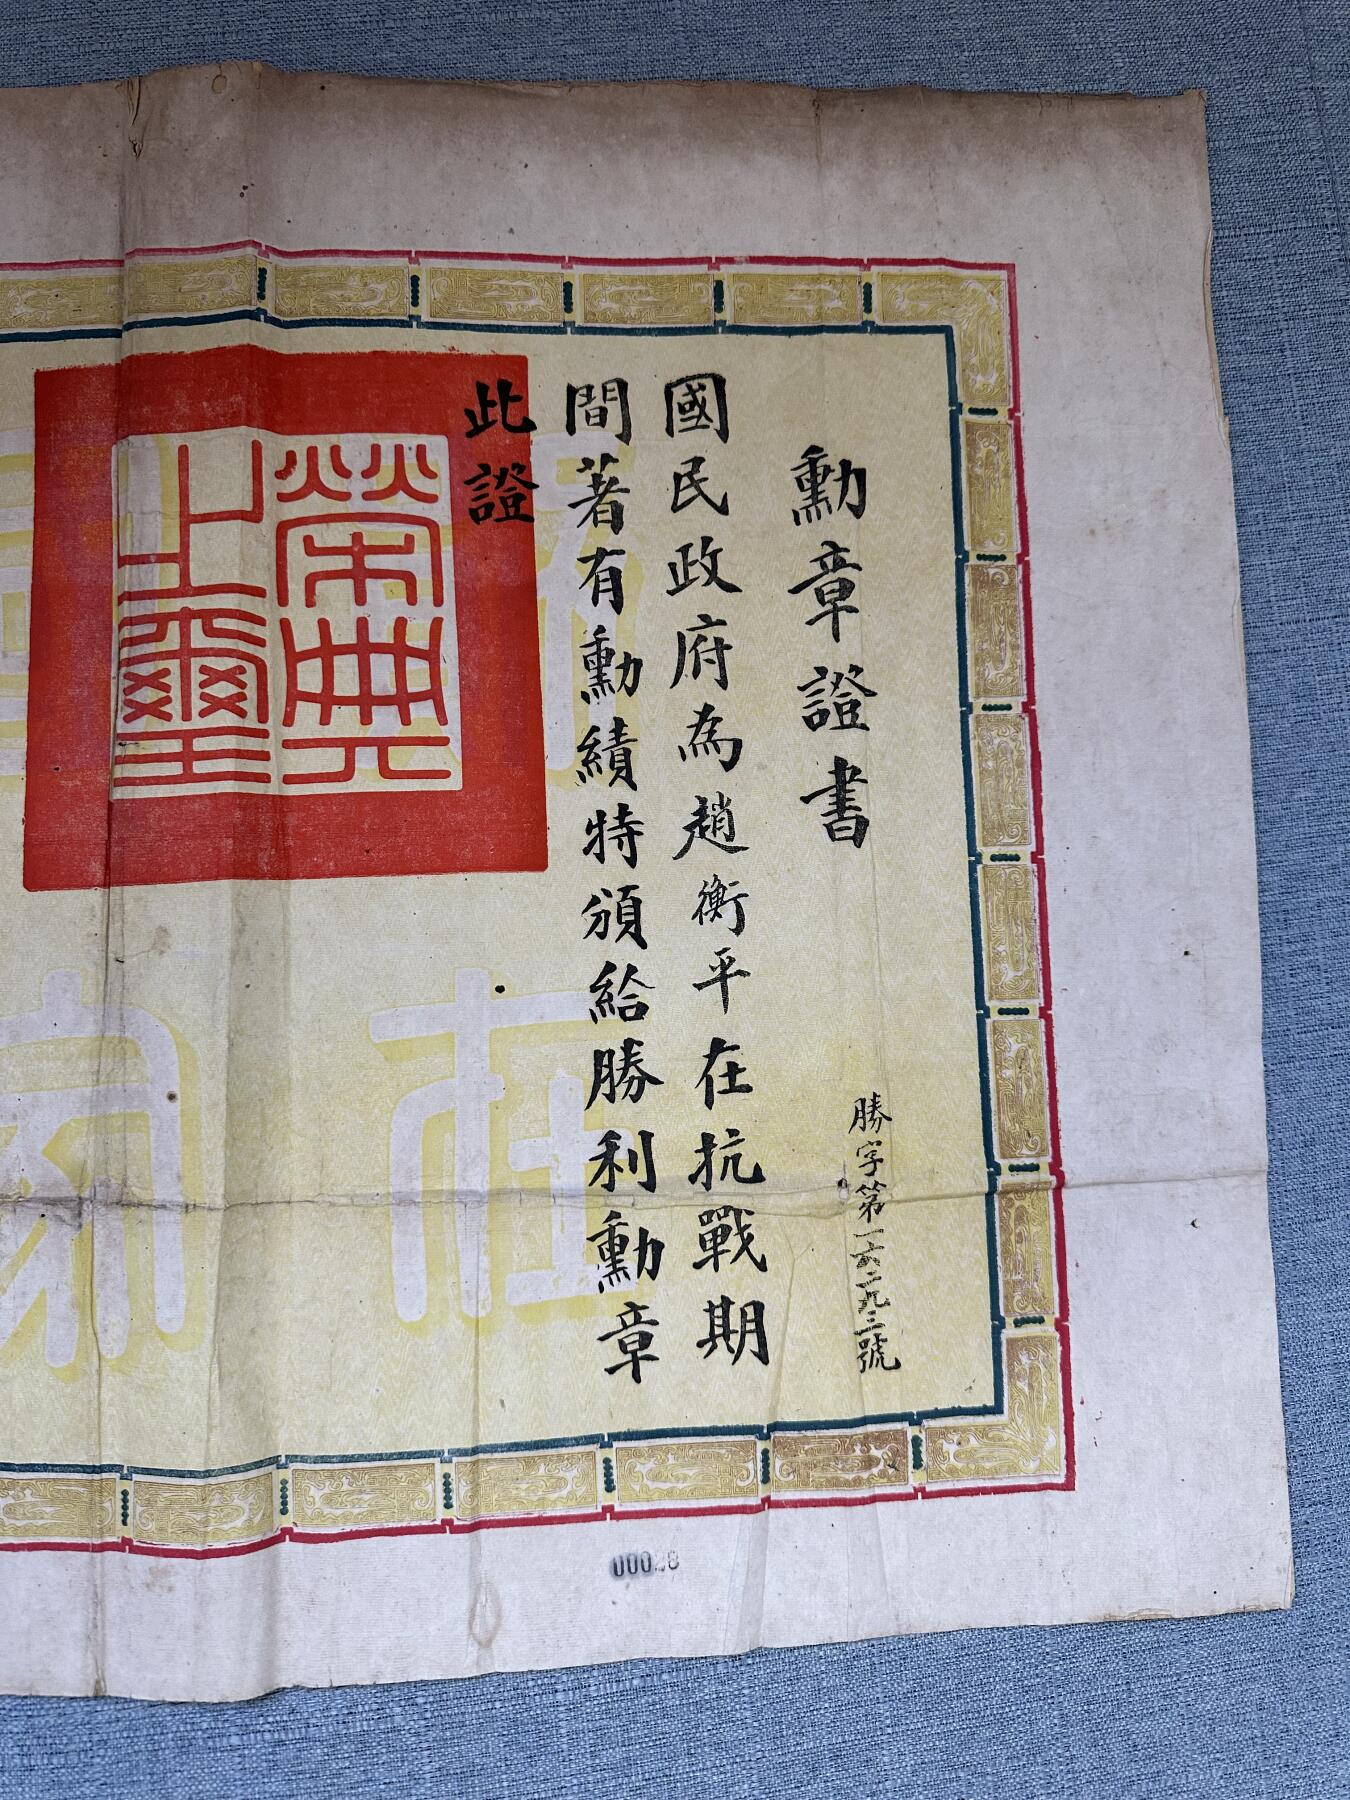 勳章證書
勝字第一六二九三號
國民政府為趙衡平在抗戰期
間著有勳績特頒給勝利勳章
此證
榮典
之璽
在